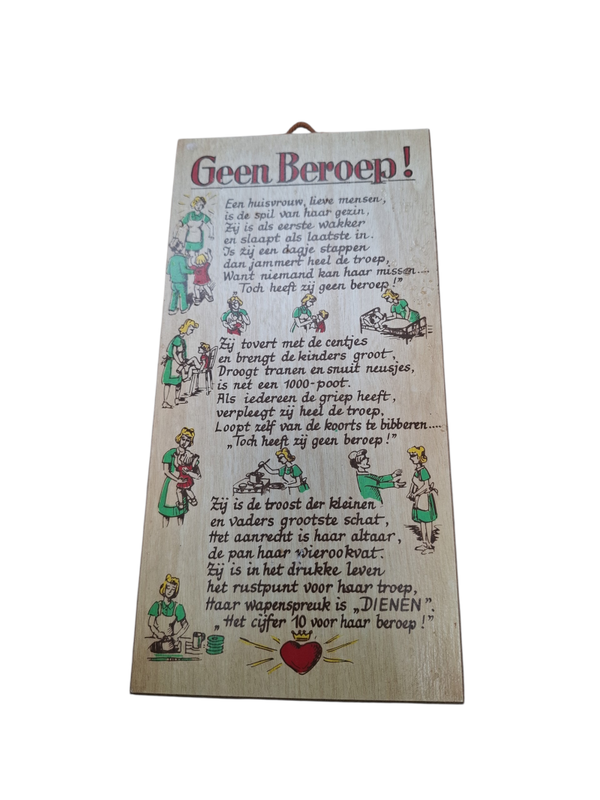 Geen Beroep!
Een huisvrouw, lieve mensen,
is de spil van haar gezin,
Zij is als eerste wakker
en slaapt als laatste in.
Is zij een dagje stappen
dan jammert heel de troep,
Want niemand kan haar missen....
„Toch heeft zij geen beroep!”
Zij tovert met de centjes
en brengt de kinders groot,
Droogt tranen en snuit neusjes,
is net een 1000-poot.
Als iedereen de griep heeft,
verpleegt zij heel de troep,
Loopt zelf van de koorts te bibberen....
„Toch heeft zij geen beroep!”
Zij is de troost der kleinen
en vaders grootste schat,
Het aanrecht is haar altaar,
de pan haar wierookvat.
Zij is in het drukke leven
het rustpunt voor haar troep,
Haar wapenspreuk is „DIENEN”.
„Het cijfer 10 voor haar beroep!”